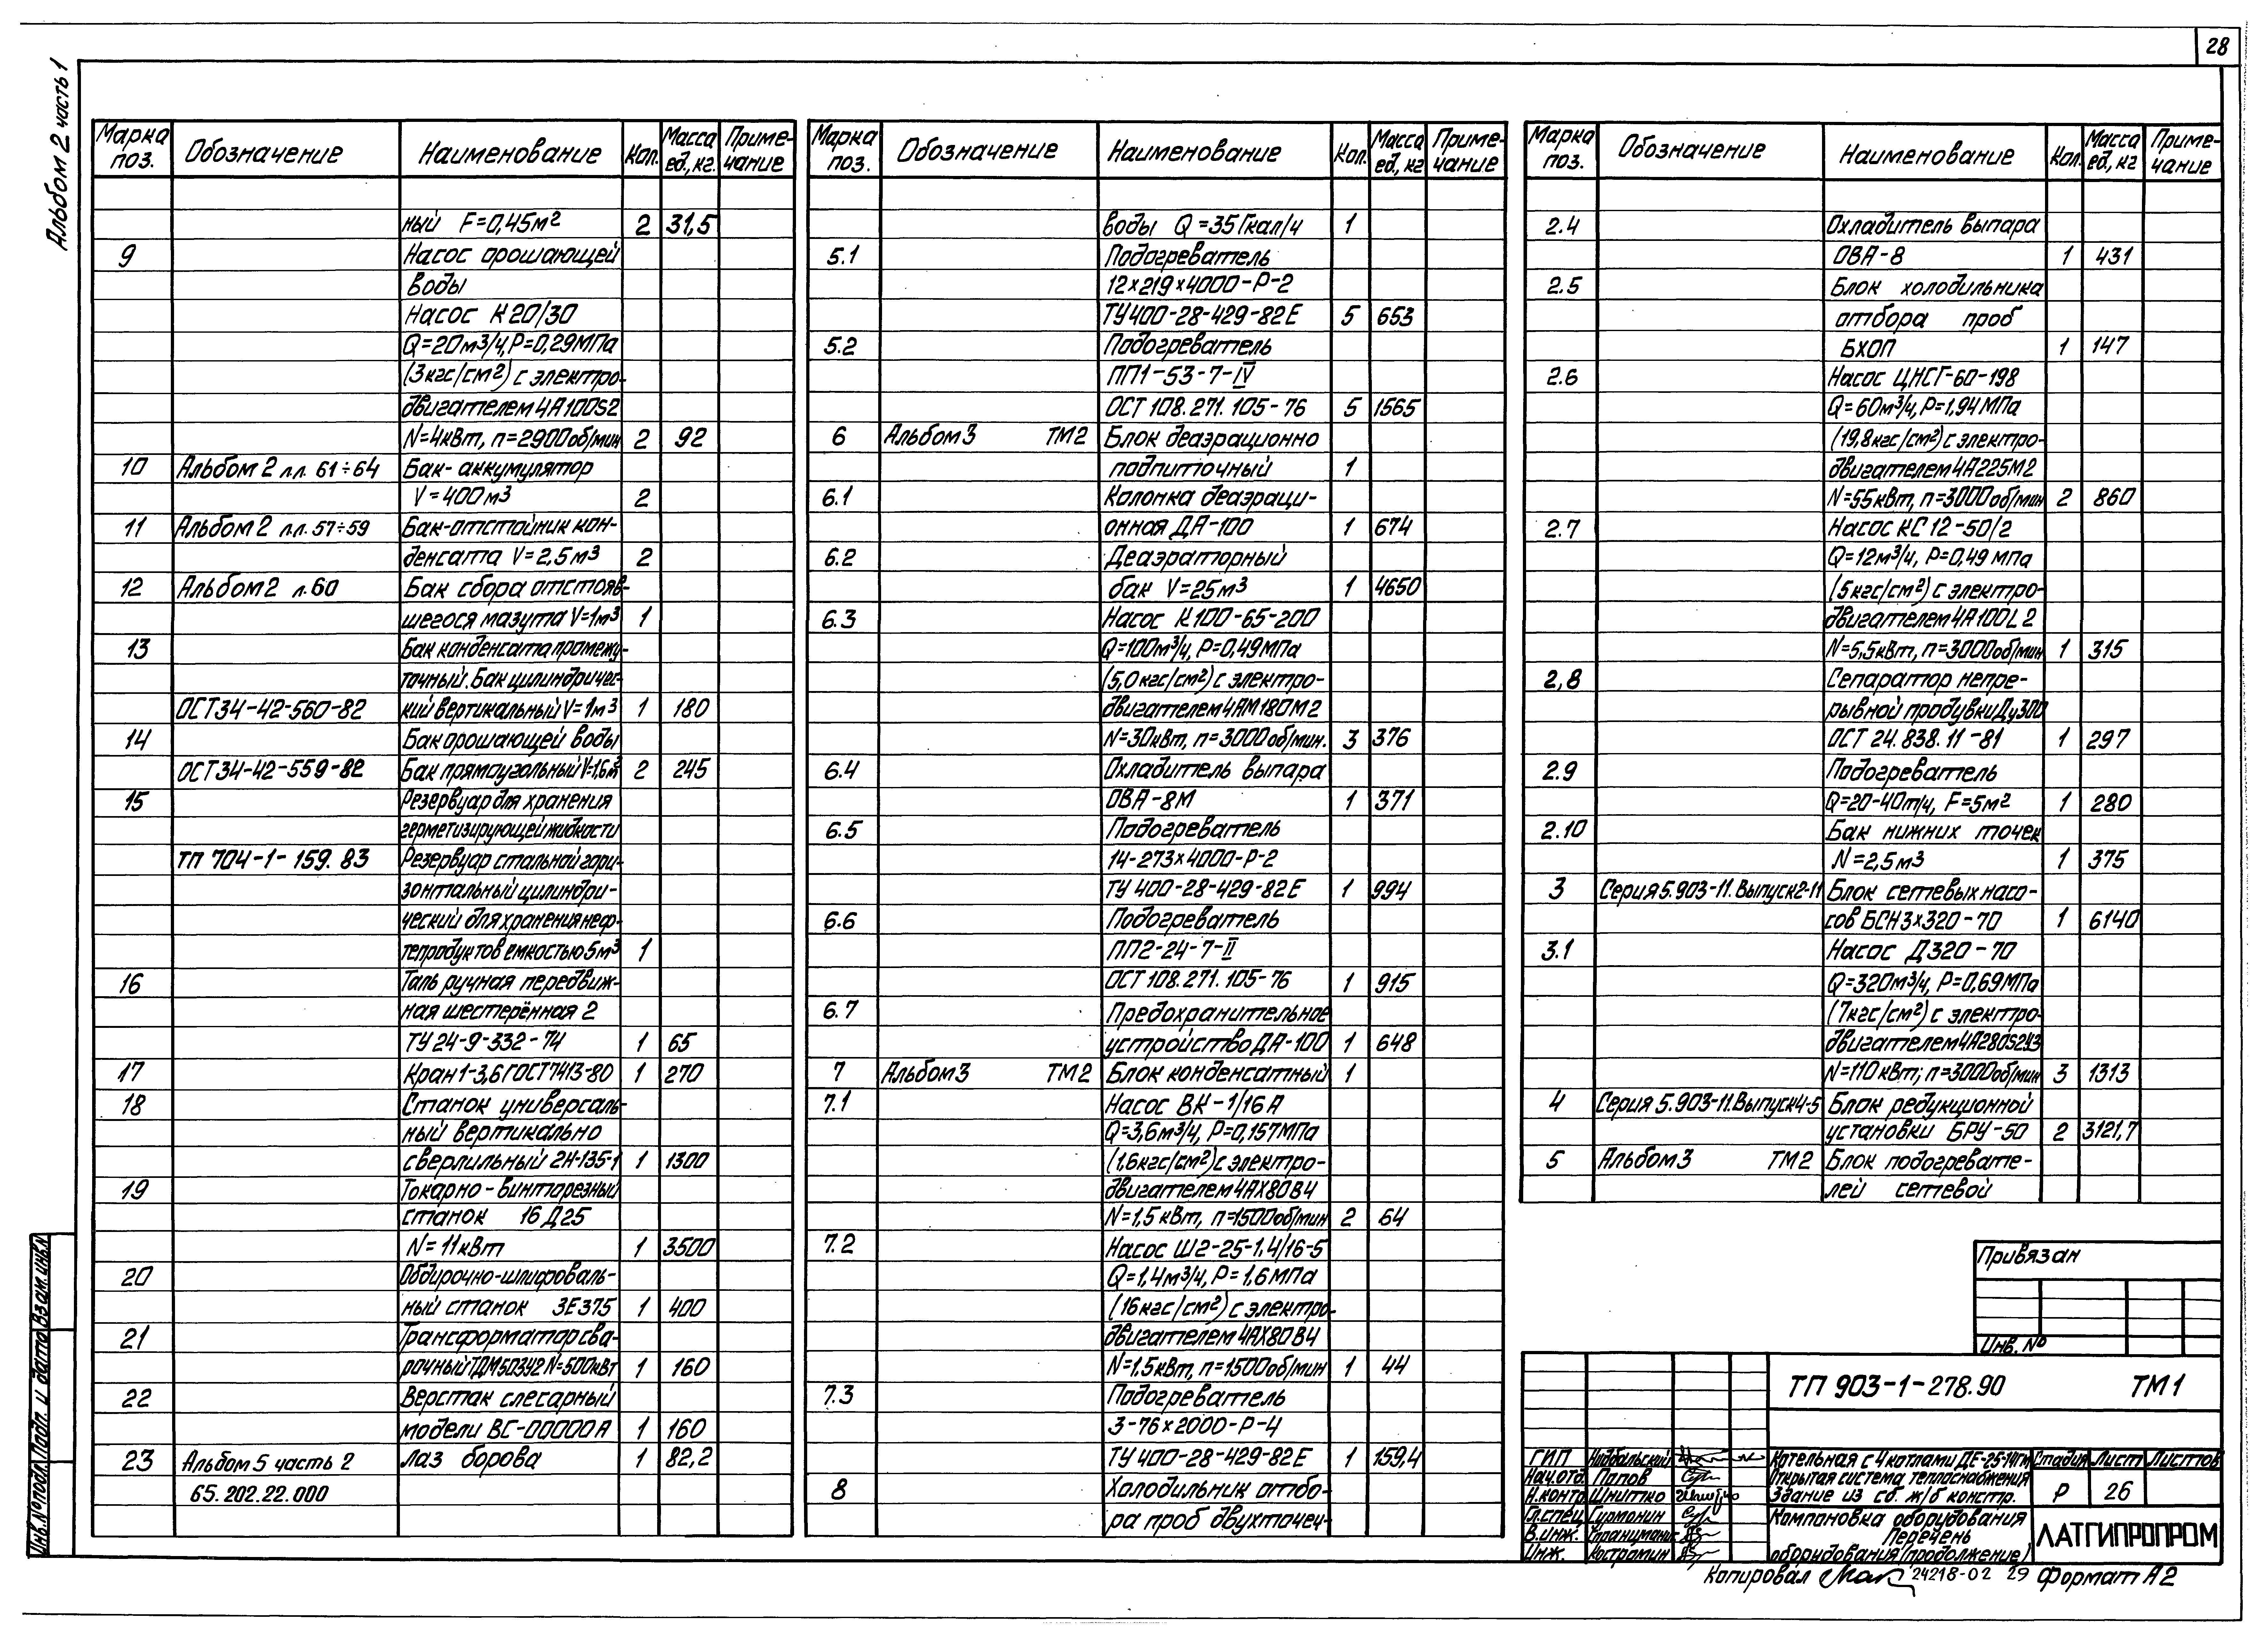 28
Альбом 2 часть 1
Марка поз. Обозначение Наименование Кол. Масса ед., кг. Приме-чание
ный F=0,45м² 2 31,5
9 Насос орошающей
воды
Насос К20/30
Q=20м³/ч, Р=0,29МПа
(3кгс/см²) с электро-
двигателем 4А100S2
N=4кВт, n=2900об/мин 2 92
10 Альбом 2 л.л. 61÷64 Бак-аккумулятор
V=400м³ 2
11 Альбом 2 л.л. 57÷59 Бак-отстойник кон-
денсата V=2,5м³ 2
12 Альбом 2 л.60 Бак сбора отстояв-
шегося мазута V=1м³ 1
13 Бак конденсата промежу-
точный. Бак цилиндричес-
ОСТ34-42-560-82 кий вертикальный V=1м³ 1 180
14 Бак орошающей воды
ОСТ34-42-559-82 Бак прямоугольный V=1,6м³ 2 245
15 Резервуар для хранения
герметизирующей жидкости
ТП 704-1-159.83 Резервуар стальной гори-
зонтальный цилиндри-
ческий для хранения неф-
тепродуктов емкостью 5м³ 1
16 Таль ручная передвиж-
ная шестерённая 2
ТУ24-9-332-74 1 65
17 Кран 1-3,6 ГОСТ7413-80 1 270
18 Станок универсаль-
ный вертикально
сверлильный 2Н-135-1 1 1300
19 Токарно-винтарезный
станок 16Д25
N=11кВт 1 3500
20 Обдирочно-шлифоваль-
ный станок 3Е375 1 400
21 Трансформатор сва-
рочный ТДМ503У2 N=500кВт 1 160
22 Верстак слесарный
модели ВС-00000А 1 160
23 Альбом 5 часть 2 лаз борова 1 82,2
65.202.22.000
Марка поз. Обозначение Наименование Кол. Масса ед., кг Приме-чание
воды Q=35Гкал/ч 1
5.1 Подогреватель
12×219×4000-Р-2
ТУ400-28-429-82Е 5 653
5.2 Подогреватель
ПП1-53-7-IV
ОСТ 108.271.105-76 5 1565
6 Альбом 3 ТМ2 Блок деаэрационно
подпиточный 1
6.1 Колонка деаэраци-
онная ДА-100 1 674
6.2 Деаэраторный
бак V=25м³ 1 4650
6.3 Насос К100-65-200
Q=100м³/ч, Р=0,49МПа
(5,0кгс/см²) с электро-
двигателем 4АМ180М2
N=30кВт, n=3000об/мин. 3 376
6.4 Охладитель выпара
ОВА-8М 1 371
6.5 Подогреватель
14-273×4000-Р-2
ТУ 400-28-429-82Е 1 994
6.6 Подогреватель
ПП2-24-7-II
ОСТ 108.271.105-76 1 915
6.7 Предохранительное
устройство ДА-100 1 648
7 Альбом 3 ТМ2 Блок конденсатный 1
7.1 Насос ВК-1/16А
Q=3,6м³/ч, Р=0,157МПа
(1,6кгс/см²) с электро-
двигателем 4АХ80В4
N=1,5кВт, n=1500об/мин 2 64
7.2 Насос Ш2-25-1,4/16-5
Q=1,4м³/ч, Р=1,6МПа
(16кгс/см²) с электро-
двигателем 4АХ80В4
N=1,5кВт, n=1500об/мин 1 44
7.3 Подогреватель
3-76×2000-Р-4
ТУ 400-28-429-82Е 1 159,4
8 Холодильник отбо-
ра проб двухточеч-
Марка поз. Обозначение Наименование Кол. Масса ед., кг Приме-чание
2.4 Охладитель выпара
ОВА-8 1 431
2.5 Блок холодильника
отбора проб
БХОП 1 147
2.6 Насос ЦНСГ-60-198
Q=60м³/ч, Р=1,94МПа
(19,8кгс/см²) с электро-
двигателем 4А225М2
N=55кВт, n=3000об/мин 2 860
2.7 Насос КС12-50/2
Q=12м³/ч, Р=0,49МПа
(5кгс/см²) с электро-
двигателем 4А100L2
N=5,5кВт, n=3000об/мин 1 315
2,8 Сепаратор непре-
рывной продувки Ду300
ОСТ 24.838.11-81 1 297
2.9 Подогреватель
Q=20-40т/ч, F=5м² 1 280
2.10 Бак нижних точек
N=2,5м³ 1 375
3 Серия 5.903-11. Выпуск 2-11 Блок сетевых насо-
сов БСН3×320-70 1 6140
3.1 Насос Д320-70
Q=320м³/ч, Р=0,69МПа
(7кгс/см²) с электро-
двигателем 4А280S2У3
N=110кВт; n=3000об/мин 3 1313
4 Серия 5.903-11. Выпуск 4-5 Блок редукционной
установки БРУ-50 2 3121,7
5 Альбом 3 ТМ2 Блок подогревате-
лей сетевой
Привязан
Инв. №
ТП 903-1-278.90 ТМ1
ГИП
Нач.отд Попов
Н.контр Шнитко
Гл.спец Гуртонин
В.инж.
Инж. Костромин
Котельная с 4 котлами ДЕ-25-14ГМ
Открытая система теплоснабжения
Здание из сб. ж/б констр.
Стадия Лист Листов
Р 26
Компоновка оборудования
Перечень
оборудования (продолжение)
ЛАТГИПРОПРОМ
Копировал 24218-02 29 Формат А2
Инв.№ подл. Подп. и дата Взам.инв.№